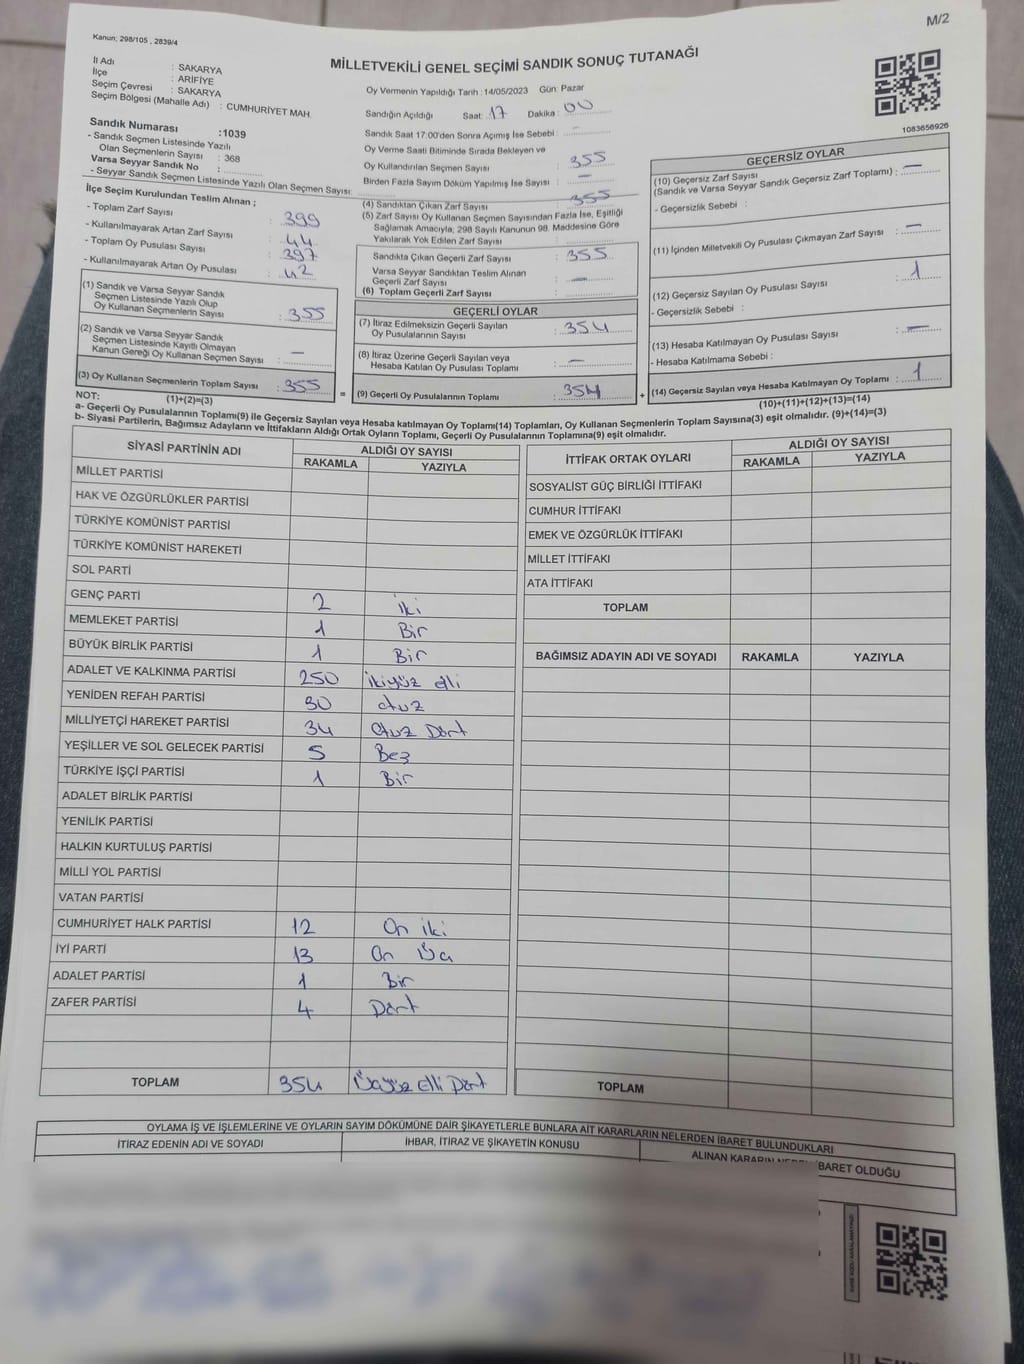 M/2
Kanun; 298/105 , 2839/4
MİLLETVEKİLİ GENEL SEÇİMİ SANDIK SONUÇ TUTANAĞI
İl Adı : SAKARYA
İlçe : ARİFİYE
Seçim Çevresi : SAKARYA
Seçim Bölgesi (Mahalle Adı) : CUMHURİYET MAH.
Sandık Numarası :1039
- Sandık Seçmen Listesinde Yazılı
Olan Seçmenlerin Sayısı : 368
Varsa Seyyar Sandık No :
- Seyyar Sandık Seçmen Listesinde Yazılı Olan Seçmen Sayısı:
Oy Vermenin Yapıldığı Tarih :14/05/2023 Gün: Pazar
Sandığın Açıldığı Saat: 17 Dakika: 00
Sandık Saat 17:00'den Sonra Açımış İse Sebebi : -
Oy Verme Saati Bitiminde Sırada Bekleyen ve
Oy Kullandırılan Seçmen Sayısı : 355
Birden Fazla Sayım Döküm Yapılmış İse Sayısı : -
1083656926
İlçe Seçim Kurulundan Teslim Alınan ;
- Toplam Zarf Sayısı : 399
- Kullanılmayarak Artan Zarf Sayısı : 44
- Toplam Oy Pusulası Sayısı : 397
- Kullanılmayarak Artan Oy Pusulası : 42
(1) Sandık ve Varsa Seyyar Sandık
Seçmen Listesinde Yazılı Olup
Oy Kullanan Seçmenlerin Sayısı : 355
(2) Sandık ve Varsa Seyyar Sandık
Seçmen Listesinde Kayıtlı Olmayan
Kanun Gereği Oy Kullanan Seçmen Sayısı : -
(3) Oy Kullanan Seçmenlerin Toplam Sayısı : 355
(1)+(2)=(3)
(4) Sandıktan Çıkan Zarf Sayısı : 355
(5) Zarf Sayısı Oy Kullanan Seçmen Sayısından Fazla İse, Eşitliği
Sağlamak Amacıyla, 298 Sayılı Kanunun 98. Maddesine Göre
Yakılarak Yok Edilen Zarf Sayısı :
Sandıkta Çıkan Geçerli Zarf Sayısı : 355
Varsa Seyyar Sandıktan Teslim Alınan
Geçerli Zarf Sayısı : -
(6) Toplam Geçerli Zarf Sayısı :
GEÇERLİ OYLAR
(7) İtiraz Edilmeksizin Geçerli Sayılan
Oy Pusulalarının Sayısı : 354
(8) İtiraz Üzerine Geçerli Sayılan veya
Hesaba Katılan Oy Pusulası Toplamı : -
= (9) Geçerli Oy Pusulalarının Toplamı : 354 +
GEÇERSİZ OYLAR
(10) Geçersiz Zarf Sayısı
(Sandık ve Varsa Seyyar Sandık Geçersiz Zarf Toplamı) : -
- Geçersizlik Sebebi :
(11) İçinden Milletvekili Oy Pusulası Çıkmayan Zarf Sayısı : -
(12) Geçersiz Sayılan Oy Pusulası Sayısı : 1
- Geçersizlik Sebebi :
(13) Hesaba Katılmayan Oy Pusulası Sayısı : -
- Hesaba Katılmama Sebebi :
(14) Geçersiz Sayılan veya Hesaba Katılmayan Oy Toplamı : 1
(10)+(11)+(12)+(13)=(14)
NOT:
a- Geçerli Oy Pusulalarının Toplamı(9) ile Geçersiz Sayılan veya Hesaba katılmayan Oy Toplamı(14) Toplamları, Oy Kullanan Seçmenlerin Toplam Sayısına(3) eşit olmalıdır. (9)+(14)=(3)
b- Siyasi Partilerin, Bağımsız Adayların ve İttifakların Aldığı Ortak Oyların Toplamı, Geçerli Oy Pusulalarının Toplamına(9) eşit olmalıdır.
SİYASİ PARTİNİN ADI ALDIĞI OY SAYISI
RAKAMLA YAZIYLA
MİLLET PARTİSİ
HAK VE ÖZGÜRLÜKLER PARTİSİ
TÜRKİYE KOMÜNİST PARTİSİ
TÜRKİYE KOMÜNİST HAREKETİ
SOL PARTİ
GENÇ PARTİ 2 iki
MEMLEKET PARTİSİ 1 Bir
BÜYÜK BİRLİK PARTİSİ 1 Bir
ADALET VE KALKINMA PARTİSİ 250 ikiyüz elli
YENİDEN REFAH PARTİSİ 30 otuz
MİLLİYETÇİ HAREKET PARTİSİ 34 Otuz Dört
YEŞİLLER VE SOL GELECEK PARTİSİ 5 Beş
TÜRKİYE İŞÇİ PARTİSİ 1 Bir
ADALET BİRLİK PARTİSİ
YENİLİK PARTİSİ
HALKIN KURTULUŞ PARTİSİ
MİLLİ YOL PARTİSİ
VATAN PARTİSİ
CUMHURİYET HALK PARTİSİ 12 On iki
İYİ PARTİ 13 On Üç
ADALET PARTİSİ 1 Bir
ZAFER PARTİSİ 4 Dört
TOPLAM 354 Üçyüz Elli Dört
İTTİFAK ORTAK OYLARI ALDIĞI OY SAYISI
RAKAMLA YAZIYLA
SOSYALİST GÜÇ BİRLİĞİ İTTİFAKI
CUMHUR İTTİFAKI
EMEK VE ÖZGÜRLÜK İTTİFAKI
MİLLET İTTİFAKI
ATA İTTİFAKI
TOPLAM
BAĞIMSIZ ADAYIN ADI VE SOYADI RAKAMLA YAZIYLA
TOPLAM
OYLAMA İŞ VE İŞLEMLERİNE VE OYLARIN SAYIM DÖKÜMÜNE DAİR ŞİKAYETLERLE BUNLARA AİT KARARLARIN NELERDEN İBARET BULUNDUKLARI
İTİRAZ EDENİN ADI VE SOYADI İHBAR, İTİRAZ VE ŞİKAYETİN KONUSU ALINAN KARARIN NEDEN İBARET OLDUĞU